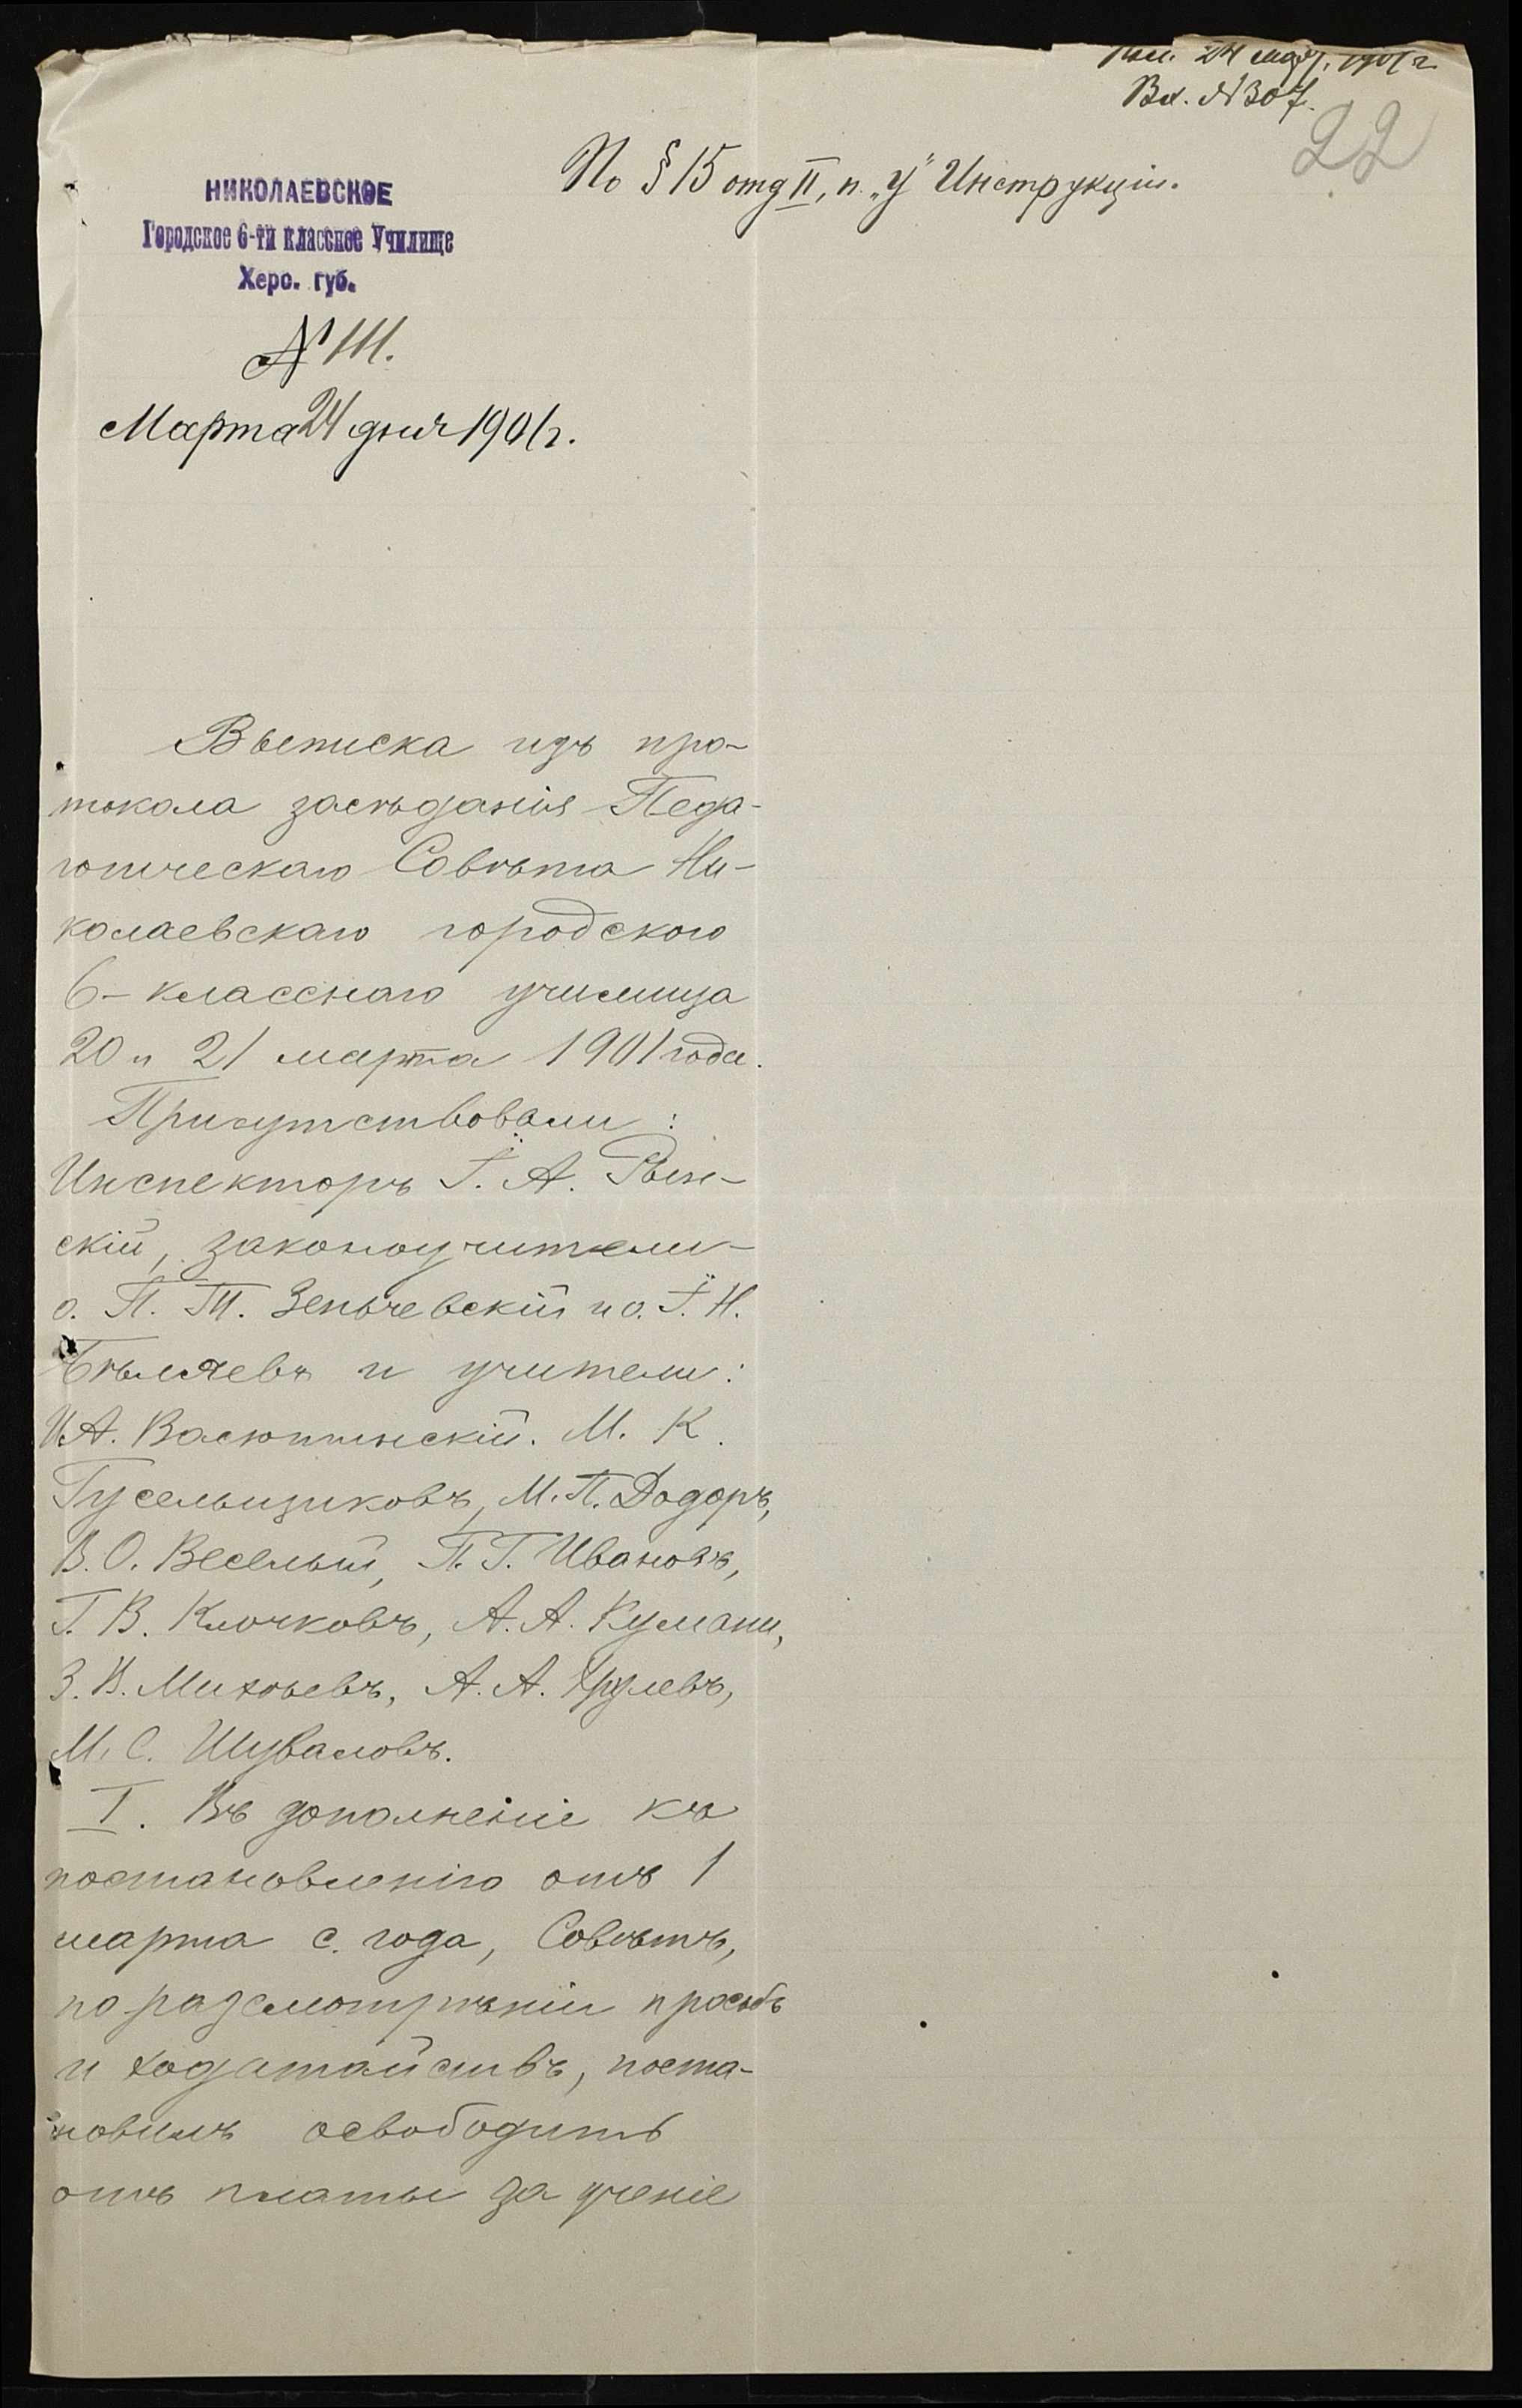 Пол. 24 марта 1901 г
Вх. № 307.
22
По § 15 отд II, п. „У" Инструкціи.
НИКОЛАЕВСКОЕ
Городское 6-ти классное Училище
Херс. губ.
№ 111.
Марта 24 дня 1901 г.
Выписка изъ про-
токола засѣданія Педа-
гогическаго Совѣта Ни-
колаевскаго городского
6-класснаго училища
20 и 21 марта 1901 года.
Присутствовали:
Инспекторъ І. А. Рын-
скій, законоучители-
о. П. Т. Зеньчевскій и о. І. Н.
Бѣляевъ и учители:
И. А. Васютинскій. М. К.
Гусельщиковъ, М. П. Додоръ,
В. О. Веселый, П. Г. Ивановъ,
Г. В. Клочковъ, А. А. Кумани,
З. В. Михѣевъ, А. А.
М. С. Шуваловъ.
I. Въ дополненіе къ
постановленію отъ 1
марта с. года, Совѣтъ,
по разсмотрѣніи просьбъ
и ходатайствъ, поста-
новилъ освободить
отъ платы за ученіе